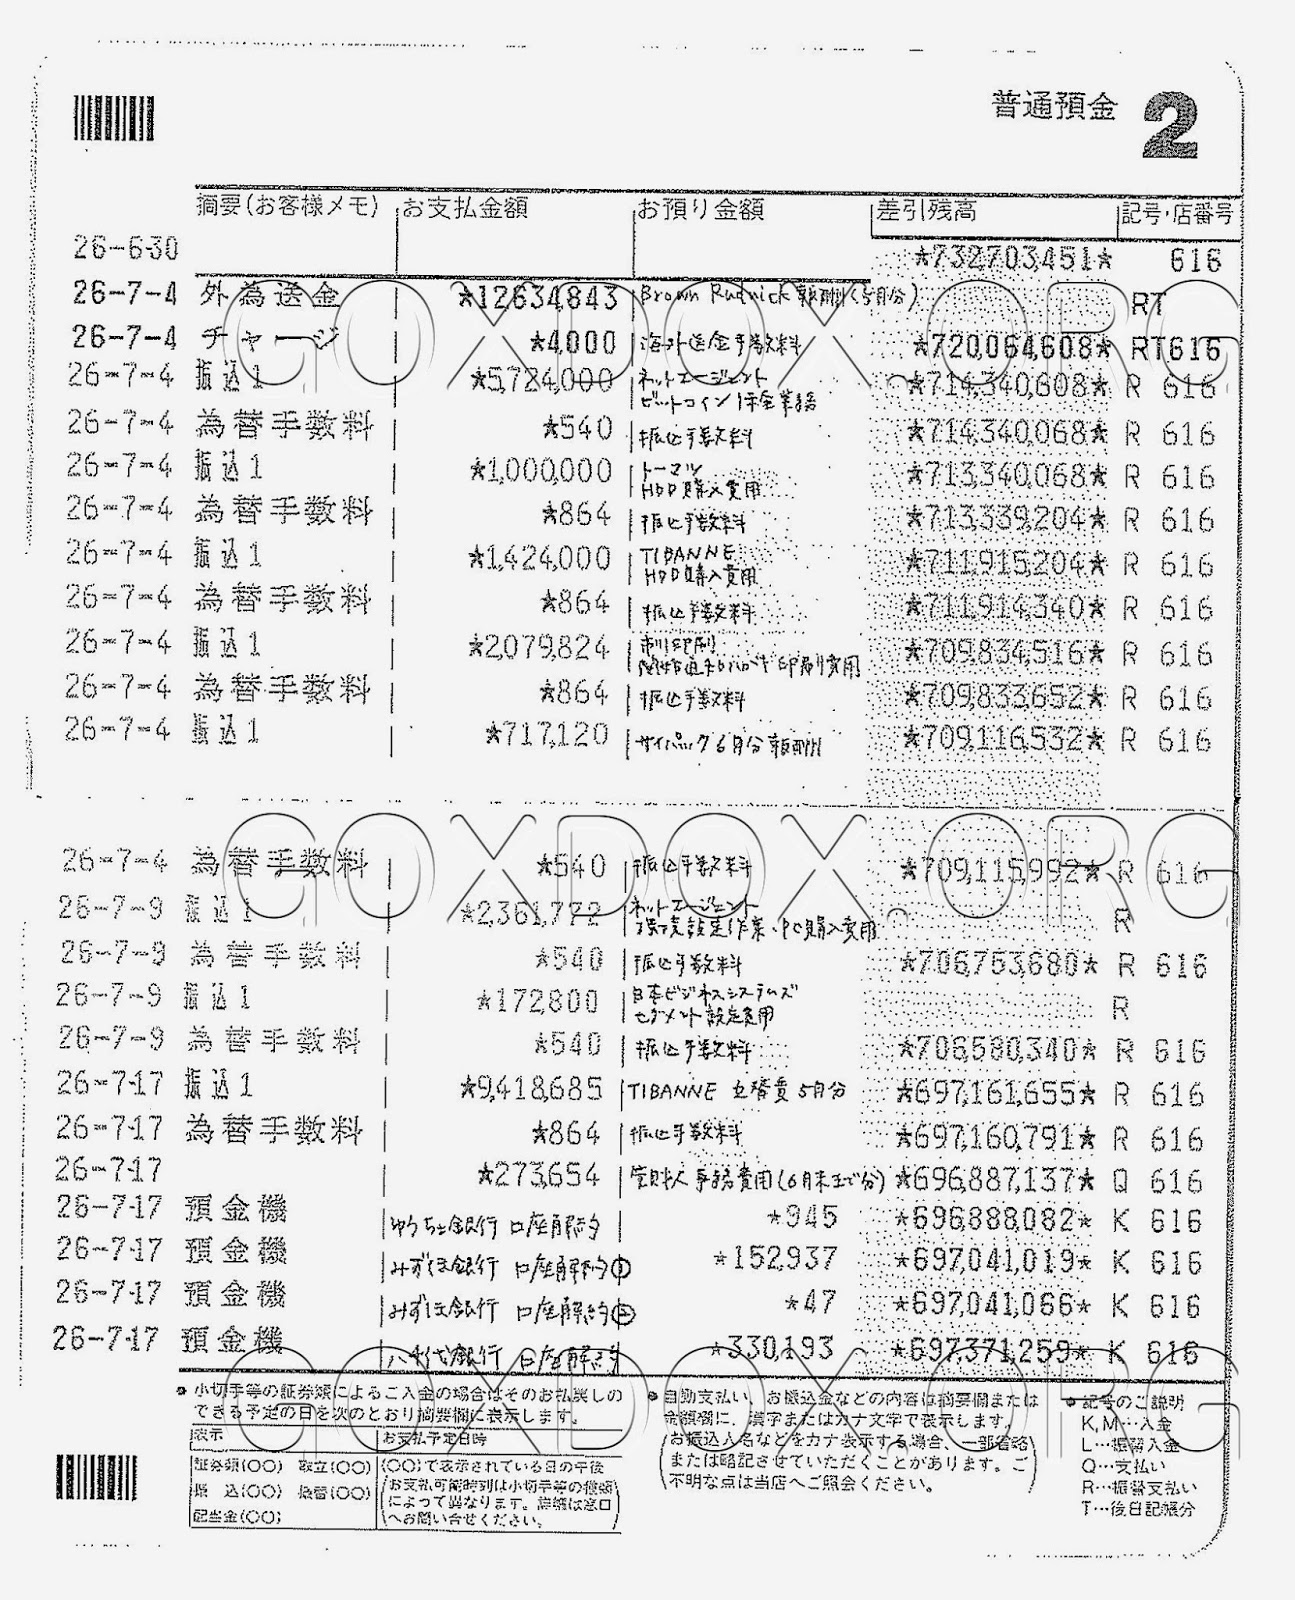 普通預金 2
摘要(お客様メモ) お支払金額 お預り金額 差引残高 記号・店番号
26-6-30 ★732,703,451★ 616
26-7-4 外為送金 ★12,634,843 Brown Rudnick 報酬(5月分) RT
26-7-4 チャージ ★4,000 海外送金手数料 ★720,064,608★ RT616
26-7-4 振込1 ★5,724,000 ネットエージェント ビットコイン保全業務 ★714,340,608★ R 616
26-7-4 為替手数料 ★540 振込手数料 ★714,340,068★ R 616
26-7-4 振込1 ★1,000,000 トーマツ HDD購入費用 ★713,340,068★ R 616
26-7-4 為替手数料 ★864 振込手数料 ★713,339,204★ R 616
26-7-4 振込1 ★1,424,000 TIBANNE HDD購入費用 ★711,915,204★ R 616
26-7-4 為替手数料 ★864 振込手数料 ★711,914,340★ R 616
26-7-4 振込1 ★2,079,824 印刷費用 ★709,834,516★ R 616
26-7-4 為替手数料 ★864 振込手数料 ★709,833,652★ R 616
26-7-4 振込1 ★717,120 サイパック6月分報酬 ★709,116,532★ R 616
26-7-4 為替手数料 ★540 振込手数料 ★709,115,992★ R 616
26-7-9 振込1 ★2,361,772 ネットエージェント 環境設定作業・PC購入費用 R
26-7-9 為替手数料 ★540 振込手数料 ★706,753,680★ R 616
26-7-9 振込1 ★172,800 日本ビジネスシステムズ セグメント設定費用 R
26-7-9 為替手数料 ★540 振込手数料 ★706,580,340★ R 616
26-7-17 振込1 ★9,418,685 TIBANNE 立替費5月分 ★697,161,655★ R 616
26-7-17 為替手数料 ★864 振込手数料 ★697,160,791★ R 616
26-7-17 ★273,654 管財人事務費用(6月末まで分) ★696,887,137★ Q 616
26-7-17 預金機 ゆうちょ銀行 口座解約 ★945 ★696,888,082★ K 616
26-7-17 預金機 みずほ銀行 口座解約① ★152,937 ★697,041,019★ K 616
26-7-17 預金機 みずほ銀行 口座解約② ★47 ★697,041,066★ K 616
26-7-17 預金機 八千代銀行 口座解約 ★330,193 ★697,371,259★ K 616
GOXDOX.ORG
GOXDOX.ORG
GOXDOX.ORG
小切手等の証券類によるご入金の場合はそのお払戻しの
できる予定の日を次のとおり摘要欄に表示します。
表示 お支払予定日時
証券類(〇〇) 取立(〇〇) (〇〇)で表示されている日の午後
振 込(〇〇) 為替(〇〇) (お支払可能時刻は小切手等の種類
によって異なります。詳細は窓口
配当金(〇〇) へお問い合せください。)
自動支払い、お振込金などの内容は摘要欄または
金額欄に、漢字またはカナ文字で表示します。
(お振込人名などをカナ表示する場合、一部省略
または略記させていただくことがあります。ご
不明な点は当店へご照会ください。)
記号のご説明
K,M…入金
L…振替入金
Q…支払い
R…振替支払い
T…後日記帳分